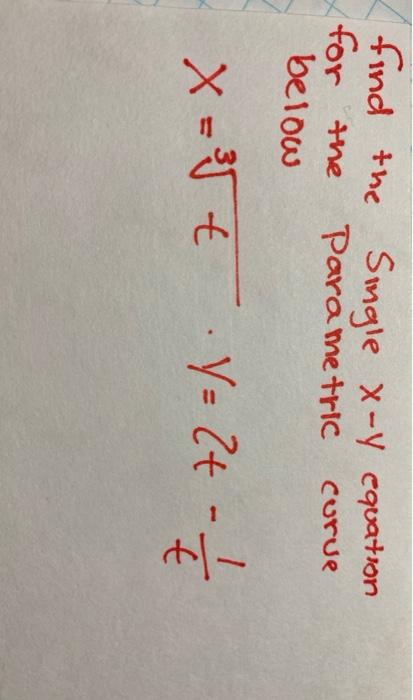 find the Single x-y equation
for the parametric curve
below
x = ∛t . y = 2t - 1/t